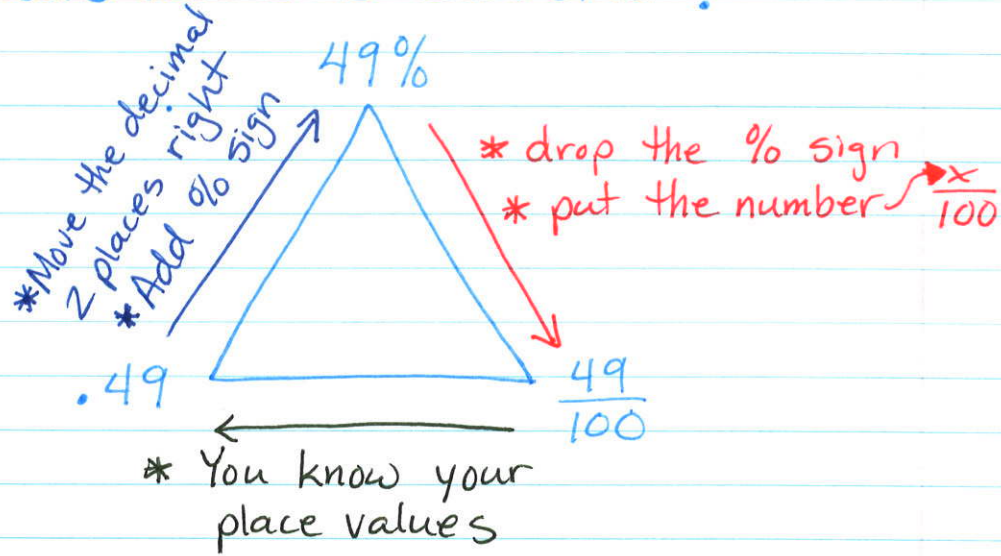 49%
*Move the decimal
2 places right
*Add % sign
* drop the % sign
* put the number x/100
.49
49/100
* You know your
place values